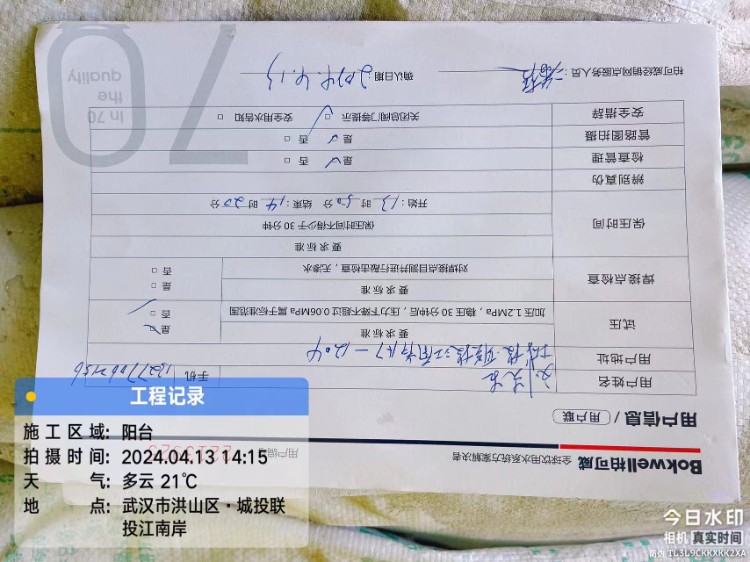 Bokwell柏可威
全球饮用水系统方案解决者
用户信息 / 用户联
用户编号
用户姓名
手机
用户地址
试压
要求标准
加压1.2MPa，稳压30分钟后，压力下降不超过0.06MPa属于标准范围
是 □
否 □
焊接点检查
要求标准
对焊接点目测并进行敲击检查，无渗水
是 □
否 □
保压时间
要求标准
保压时间不得少于30分钟
开始：13 时 50 分 结束：14 时 20 分
辨别真伪
检查管理
是 否 □
管路图拍摄
是 否 □
安全措辞
关闭总阀门等提示 □ 安全用水告知 □
柏可威经销网点服务人员：
确认日期：2024.4.13
In 70
the
quality
70
工程记录
施工区域: 阳台
拍摄时间: 2024.04.13 14:15
天气: 多云 21℃
地点: 武汉市洪山区·城投联
投江南岸
今日水印
相机 真实时间
防伪 1L3L9CKKXKK2XA